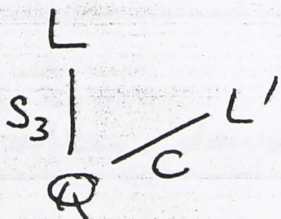 L
S₃ L'
C
Q